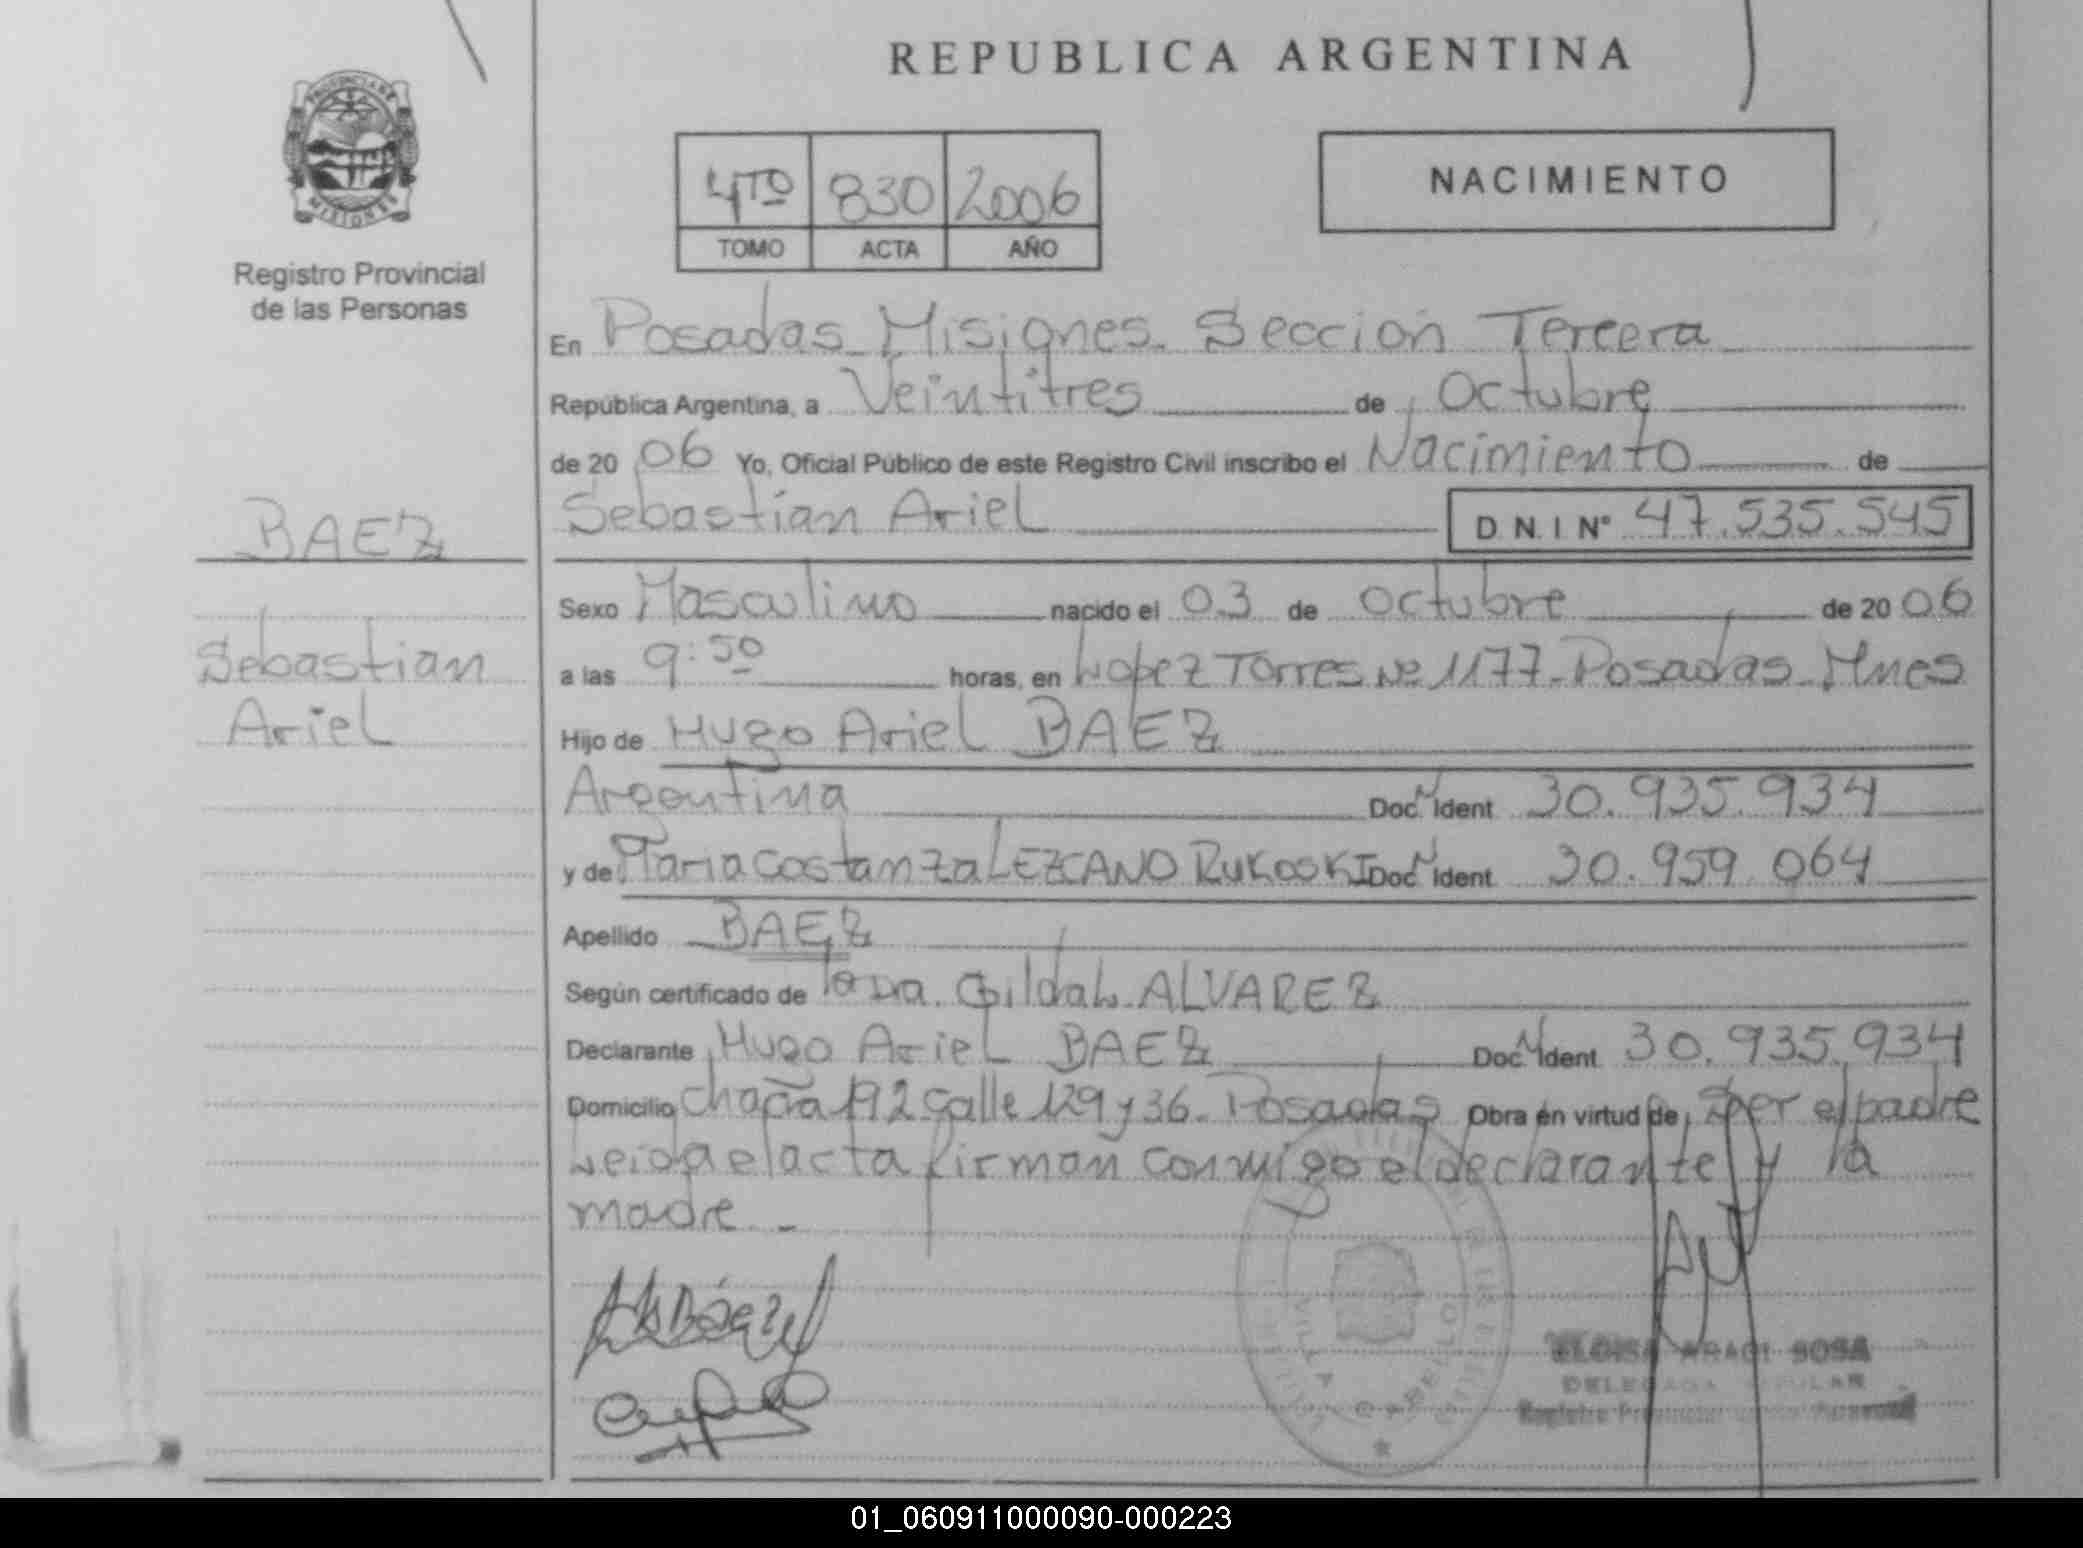 REPUBLICA ARGENTINA
PROVINCIA DE MISIONES
Registro Provincial
de las Personas
4TO 830 2006
TOMO ACTA AÑO
NACIMIENTO
En Posadas Misiones. Sección Tercera
República Argentina, a Veintitres de Octubre
de 20 06 Yo, Oficial Público de este Registro Civil inscribo el Nacimiento de
Sebastian Ariel D.N.I Nº 47.535.545
BAEZ
Sebastian
Ariel
Sexo Masculino nacido el 03 de Octubre de 20 06
a las 9:50 horas, en Lopez Torres Nº 1177-Posadas-Mnes
Hijo de Hugo Ariel BAEZ
Argentina Doc. N Ident 30.935.934
y de Maria Costanza LEZCANO RUKOSKI Doc. N Ident 30.959.064
Apellido BAEZ
Según certificado de la Dra. Gilda L. ALVAREZ
Declarante Hugo Ariel BAEZ Doc. N Ident 30.935.934
Domicilio Chacra 192 Calle 129 y 36-Posadas Obra en virtud de Ser el padre
Leida el acta firman conmigo el declarante y la
madre.-
VILLA CABELLO
ELOISA SOSA
DELEGADA TITULAR
Registro Provincial
01_060911000090-000223